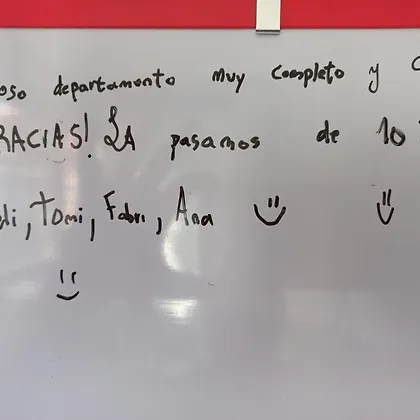 oso departamento muy completo y
RACIAS! LA pasamos de 10
li, Tomi, Fabri, Ana